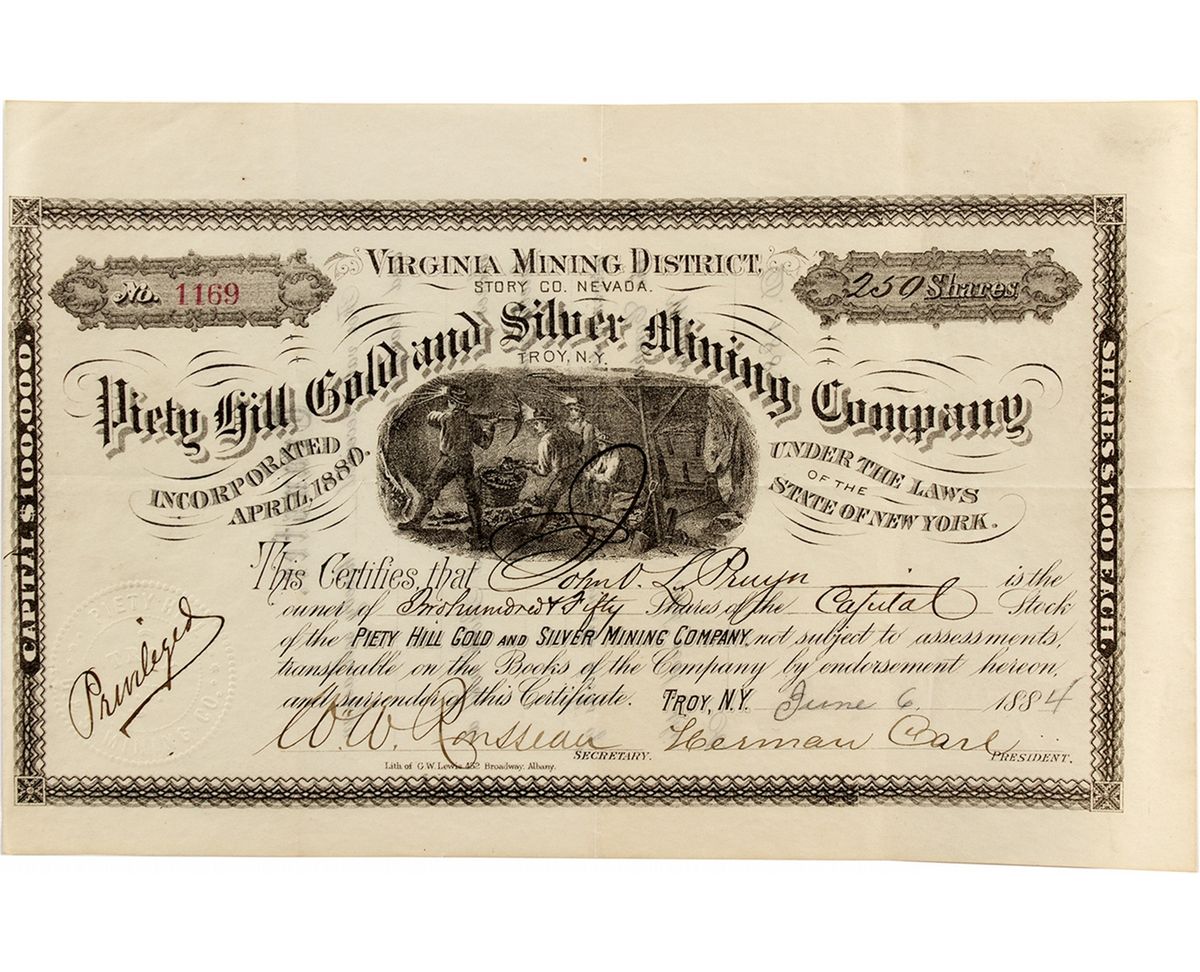 VIRGINIA MINING DISTRICT,
STORY CO. NEVADA.
No. 1169
250 Shares
Piety Hill Gold and Silver Mining Company
TROY, N.Y.
INCORPORATED
APRIL, 1880.
UNDER THE LAWS
OF THE
STATE OF NEW YORK.
CAPITAL $100,000.
SHARES $100 EACH.
This Certifies, that John V. L. Pruyn is the
owner of Two hundred & Fifty Shares of the Capital Stock
of the PIETY HILL GOLD AND SILVER MINING COMPANY, not subject to assessments,
transferable on the Books of the Company by endorsement hereon,
and surrender of this Certificate. TROY, N.Y. June 6 1884
Privileged
PIETY
MINING CO.
W. W. Rousseau
SECRETARY.
Herman Carl
PRESIDENT.
Lith of G.W. Lewis 452 Broadway, Albany.